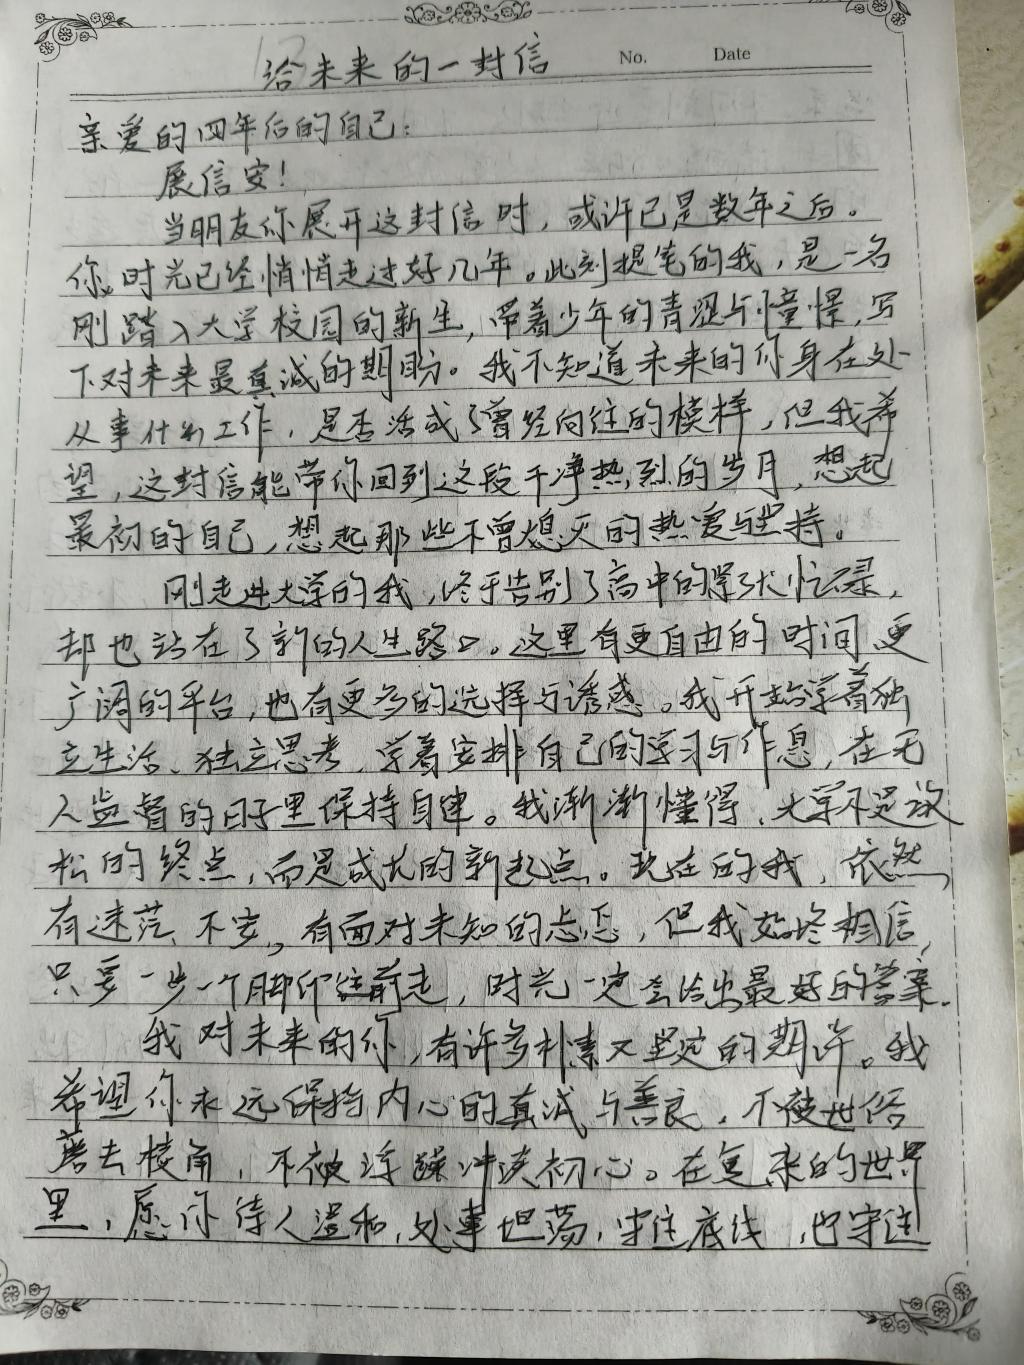 给未来的一封信
No. Date
亲爱的四年后的自己：
展信安！
当明友你展开这封信时，或许已是数年之后。
你，时光已经悄悄走过好几年。此刻提笔的我，是一名
刚踏入大学校园的新生，带着少年的青涩与憧憬，写
下对未来最真诚的期盼。我不知道未来的你身在处
从事什么工作，是否活成了曾经向往的模样，但我希
望，这封信能带你回到这段干净热烈的岁月，想起
最初的自己，想起那些不曾熄灭的热爱与坚持。
刚走进大学的我，终于告别了高中的 忙碌，
却也站在了新的人生路口。这里有更自由的时间更
广阔的平台，也有更多的选择与诱惑。我开始学着独
立生活、独立思考，学着安排自己的学习与作息，在无
人监督的日子里保持自律。我渐渐懂得，大学不是放
松的终点，而是成长的新起点。现在的我，依然
有迷茫、不安，有面对未知的忐忑，但我始终相信，
只要一步一个脚印往前走，时光一定会给出最好的答案。
我对未来的你，有许多朴素又坚定的期许。我
希望你永远保持内心的真诚与善良，不被世俗
磨去棱角，不被浮躁冲淡初心。在复杂的世界
里，愿你待人温和，处事坦荡，守住底线，也守住